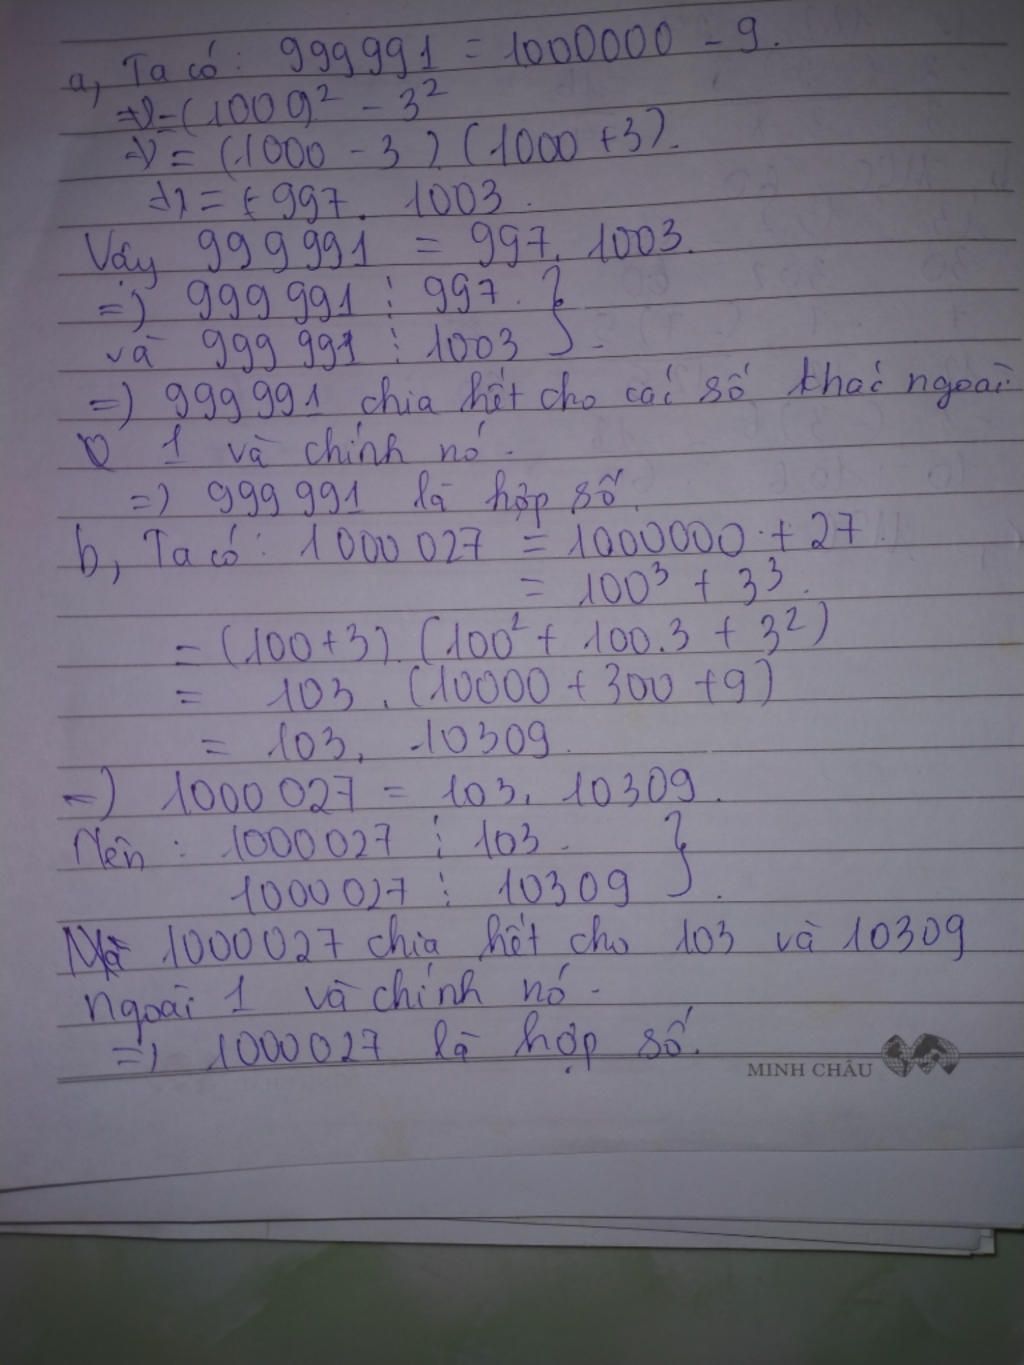 a, Ta có: 999991 = 1000000 - 9.
= (1000)² - 3²
= (1000 - 3).(1000 + 3).
= 997. 1003.
Vậy 999991 = 997. 1003.
=) 999991 ⋮ 997. }
và 999991 ⋮ 1003
=) 999991 chia hết cho các số khác ngoài
1 và chính nó.
=) 999991 là hợp số.
b, Ta có: 1000027 = 1000000 + 27.
= 100³ + 3³.
= (100+3).(100² + 100.3 + 3²)
= 103. (10000 + 300 + 9)
= 103. 10309.
=) 1000027 = 103. 10309.
Nên : 1000027 ⋮ 103. }
1000027 ⋮ 10309
Mà 1000027 chia hết cho 103 và 10309
ngoài 1 và chính nó.
=) 1000027 là hợp số.
MINH CHÂU